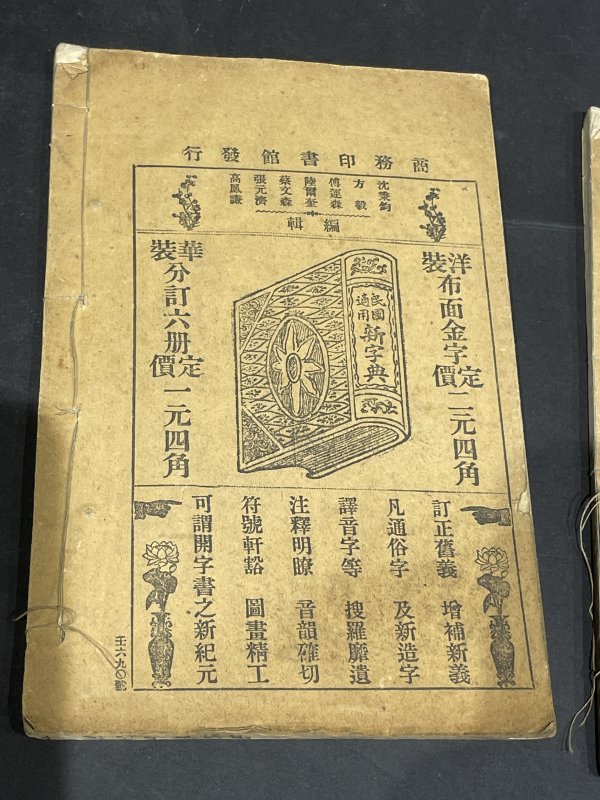 商務印書館發行
沈秉鈞
方毅
傅運森
陸爾奎
蔡文森
張元濟
高鳳謙
編輯
洋裝布面金字定價二元四角
民國適用
新字典
華裝分訂六册定價一元四角
訂正舊義 增補新義
凡通俗字 及新造字
譯音字等 搜羅靡遺
注釋明瞭 音韻確切
符號軒豁 圖畫精工
可謂開字書之新紀元
壬六九〇號